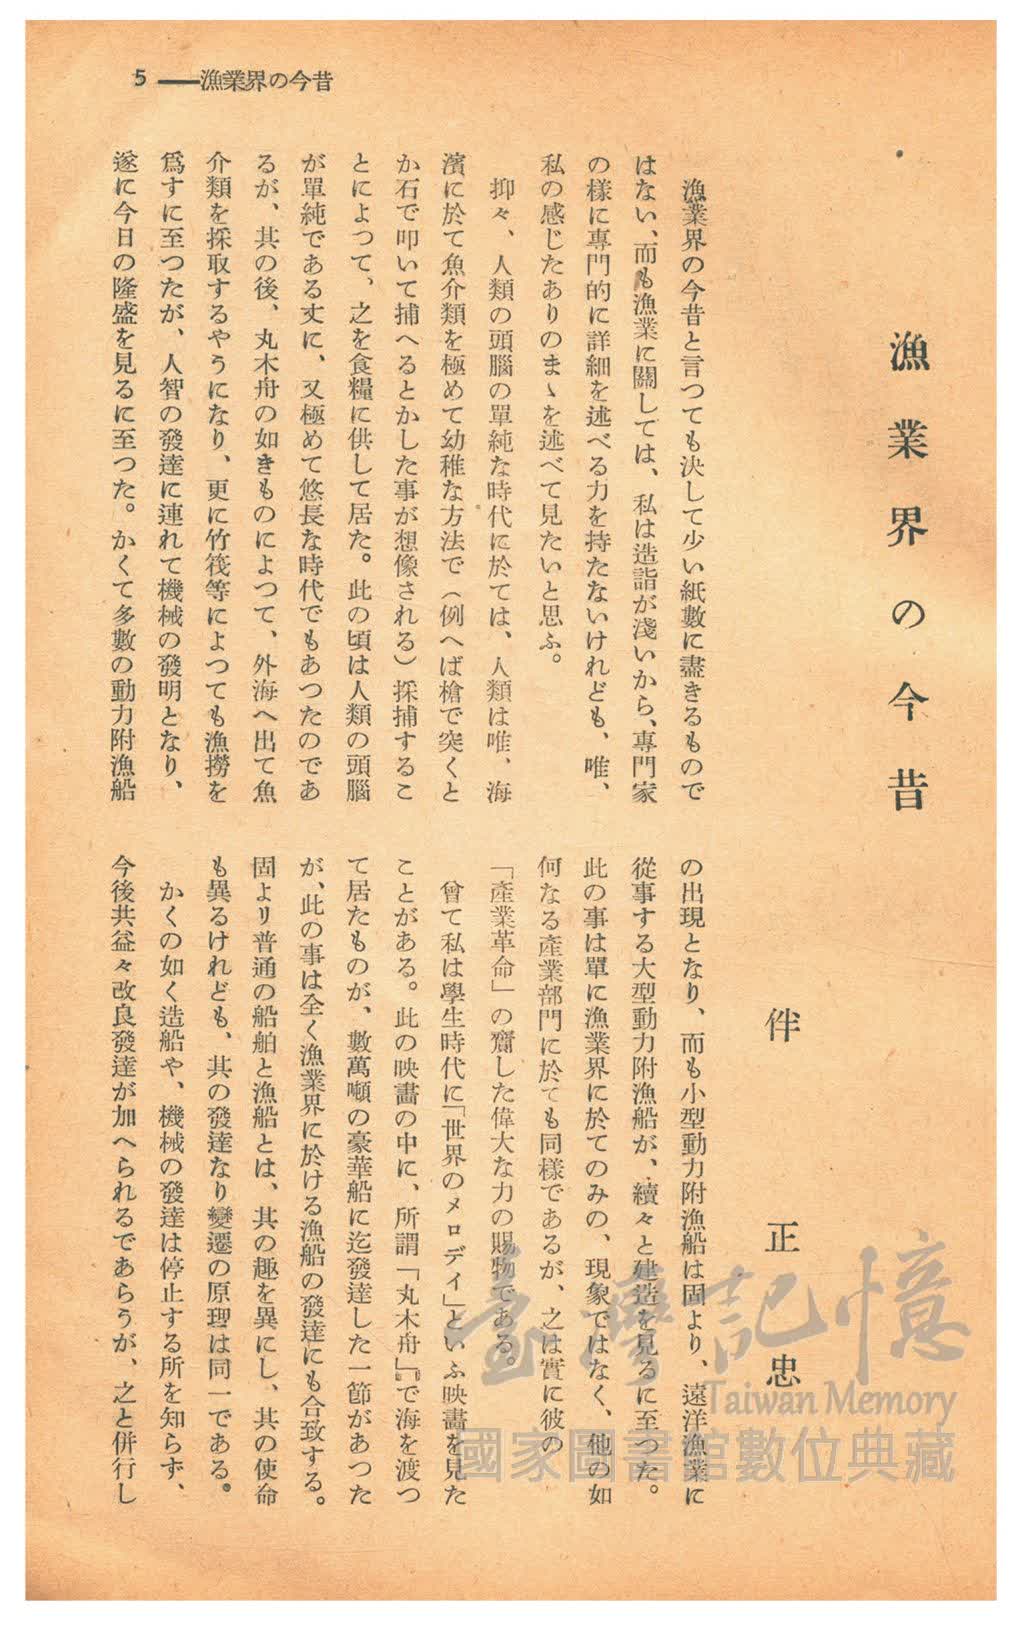 5 ——漁業界の今昔
漁業界の今昔
伴正忠
漁業界の今昔と言つても決して少い紙數に盡きるもので
はない、而も漁業に關しては、私は造詣が淺いから、專門家
の樣に專門的に詳細を述べる力を持たないけれども、唯、
私の感じたありのまゝを述べて見たいと思ふ。
抑々、人類の頭腦の單純な時代に於ては、人類は唯、海
濱に於て魚介類を極めて幼稚な方法で（例へば槍で突くと
か石で叩いて捕へるとかした事が想像される）採捕するこ
とによつて、之を食糧に供して居た。此の頃は人類の頭腦
が單純である丈に、又極めて悠長な時代でもあつたのであ
るが、其の後、丸木舟の如きものによつて、外海へ出て魚
介類を採取するやうになり、更に竹筏等によつても漁撈を
爲すに至つたが、人智の發達に連れて機械の發明となり、
遂に今日の隆盛を見るに至つた。かくて多數の動力附漁船
の出現となり、而も小型動力附漁船は固より、遠洋漁業に
從事する大型動力附漁船が、續々と建造を見るに至つた。
此の事は單に漁業界に於てのみの、現象ではなく、他の如
何なる產業部門に於ても同樣であるが、之は實に彼の
「產業革命」の齎した偉大な力の賜物である。
曾て私は學生時代に「世界のメロデイ」といふ映畫を見た
ことがある。此の映畫の中に、所謂「丸木舟」』で海を渡つ
て居たものが、數萬噸の豪華船に迄發達した一節があつた
が、此の事は全く漁業界に於ける漁船の發達にも合致する。
固より普通の船舶と漁船とは、其の趣を異にし、其の使命
も異るけれども、其の發達なり變遷の原理は同一である。
かくの如く造船や、機械の發達は停止する所を知らず、
今後共益々改良發達が加へられるであらうが、之と併行し
臺灣記憶
Taiwan Memory
國家圖書館數位典藏